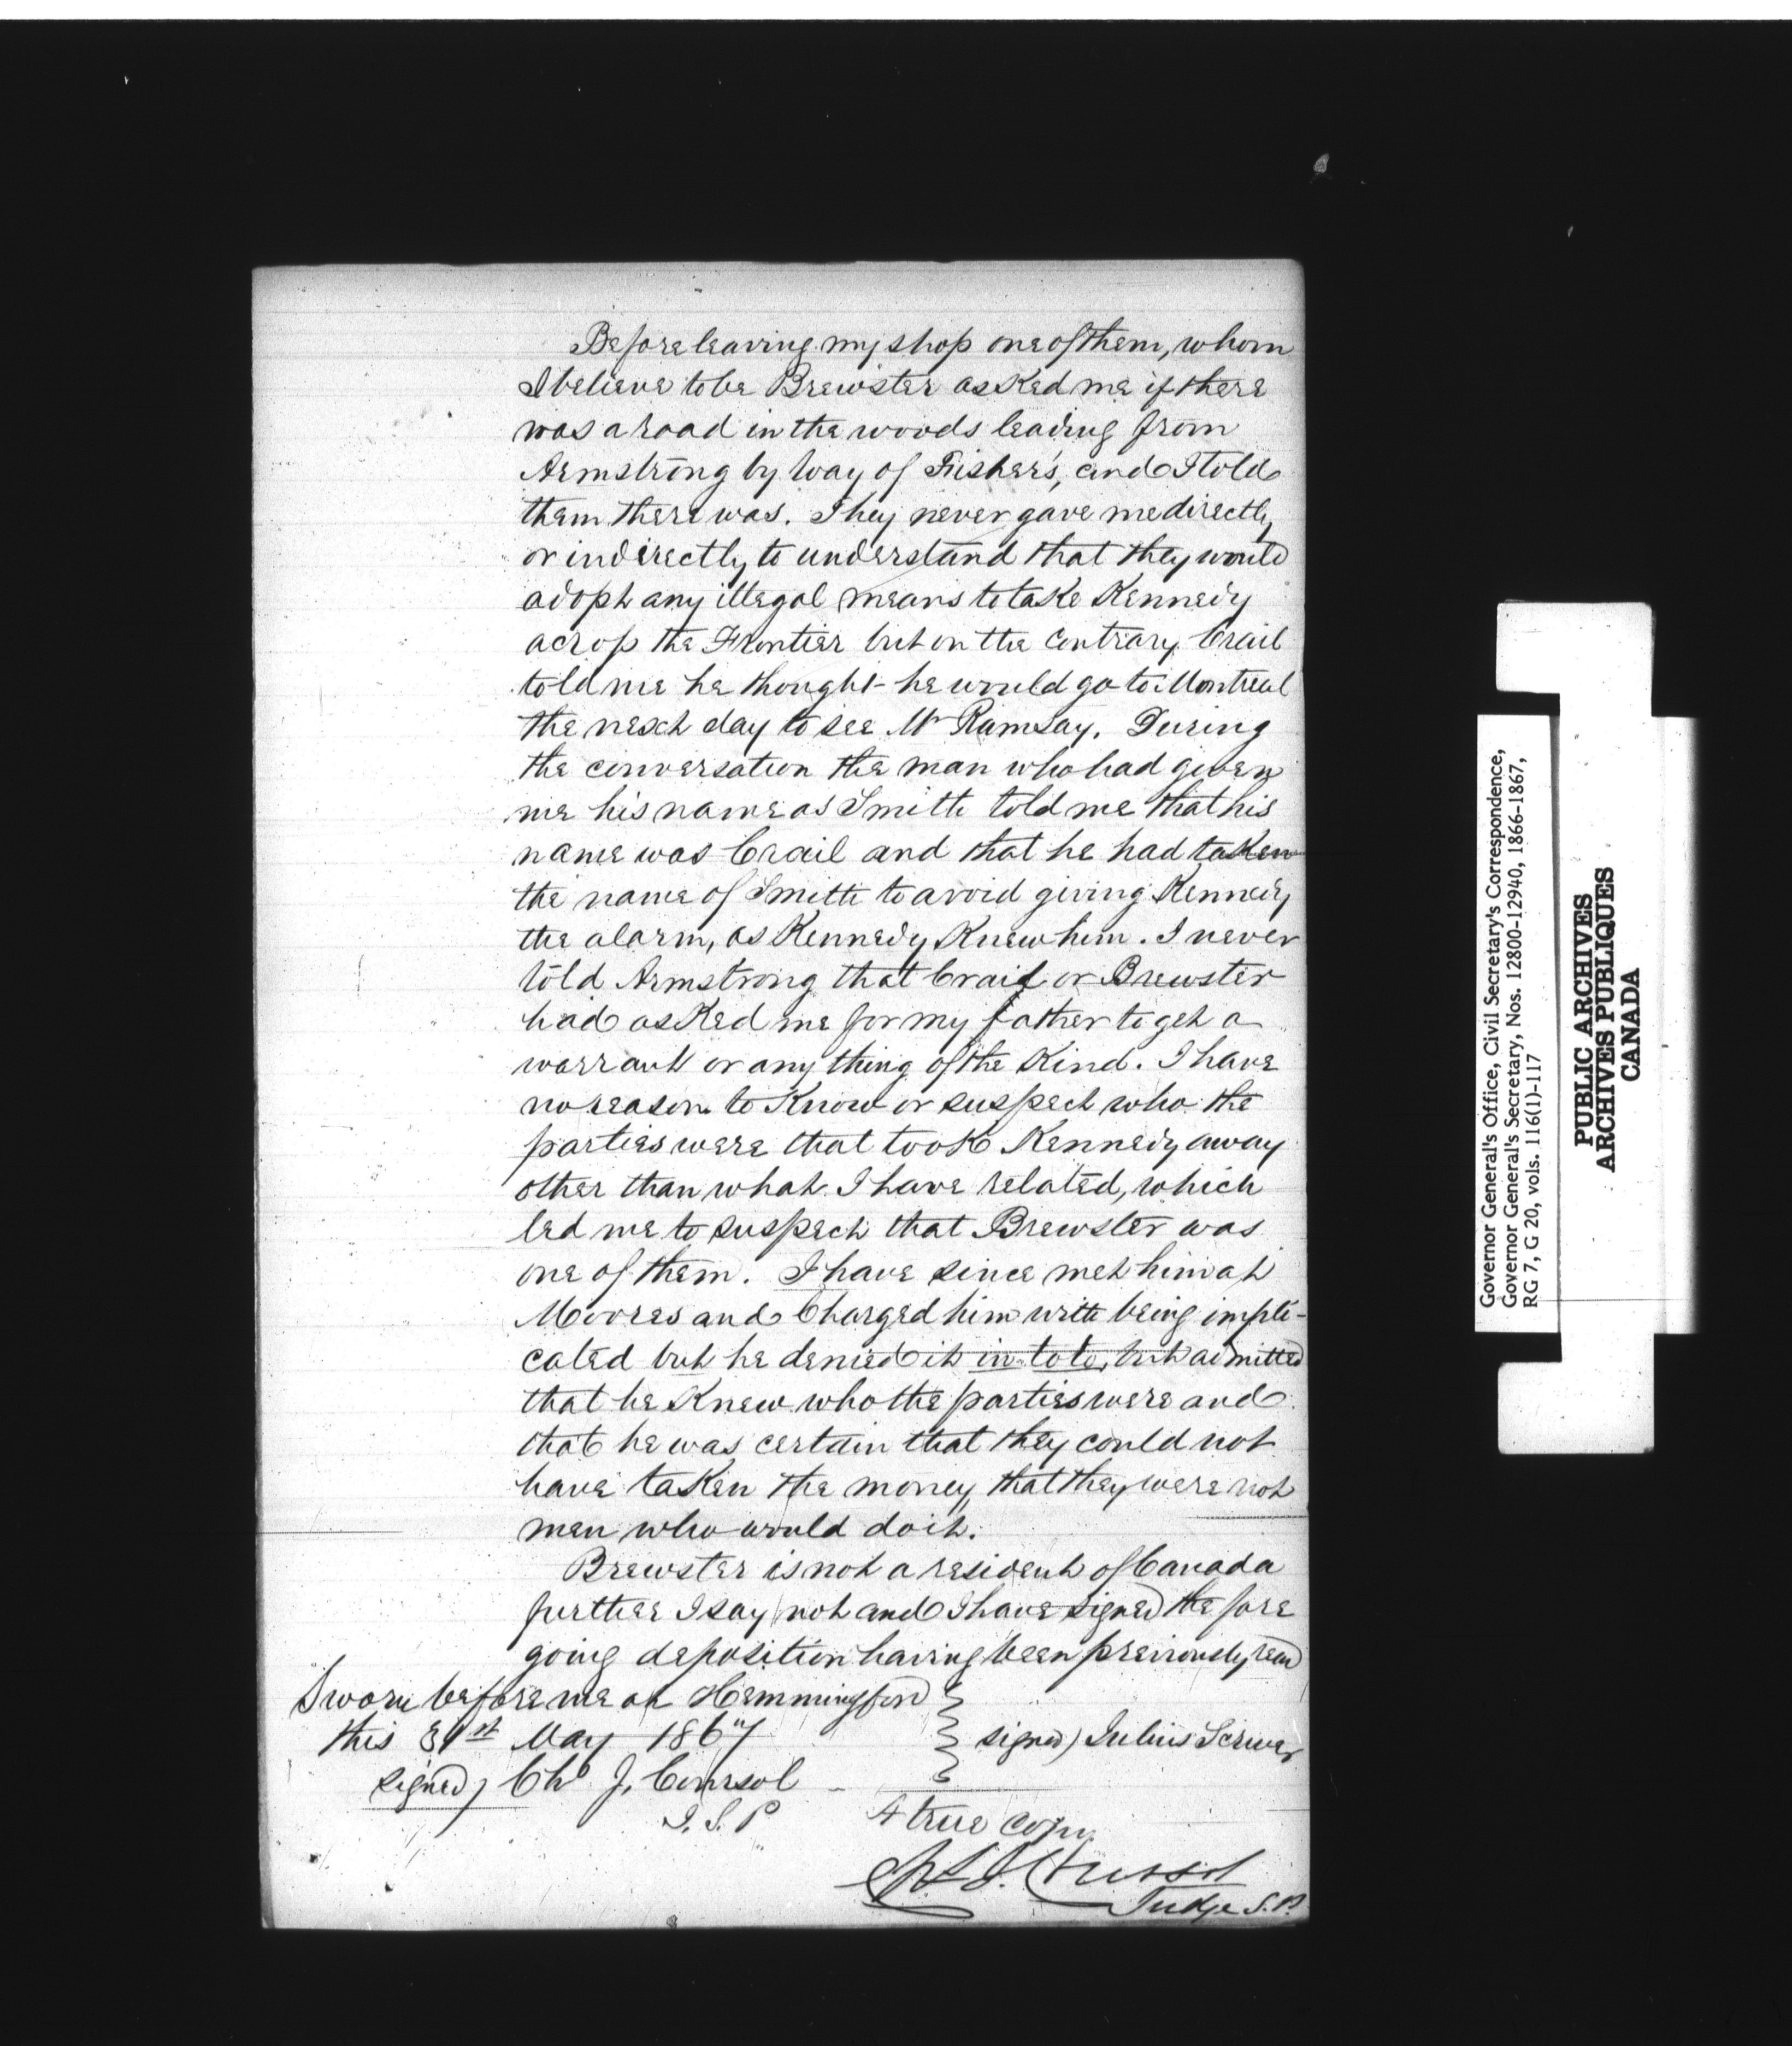 Before leaving my shop one of them, whom
I believe to be Brewster asked me if there
was a road in the woods leading from
Armstrong by way of Fisher's, and I told
them there was. They never gave me directly
or indirectly to understand that they would
adopt any illegal means to take Kennedy
across the Frontier but on the contrary Crail
told me he thought he would go to Montreal
the next day to see Mr Ramsay. During
the conversation the man who had given
me his name as Smith told me that his
name was Crail and that he had taken
the name of Smith to avoid giving Kennedy
the alarm, as Kennedy Knew him. I never
told Armstrong that Crail or Brewster
had asked me for my father to get a
warrant or any thing of the Kind. I have
no reason to Know or suspect who the
parties were that took Kennedy away
other than what I have related, which
led me to suspect that Brewster was
one of them. I have since met him at
Moores and Charged him with being impli-
cated but he denied it in toto, but admitted
that he Knew who the parties were and
that he was certain that they could not
have taken the money, that they were not
men who would do it.
Brewster is not a resident of Canada
further I say not and I have signed the fore
going deposition having been previously read
Sworn before me at Hemmingford
this 31st May 1867
signed) Julius Scriver
signed) Chs J. Coursol
J.S.P
A true copy
Chs J. Coursol
Judge S.P.
Governor General's Office, Civil Secretary's Correspondence,
Governor General's Secretary, Nos. 12800-12940, 1866-1867,
RG 7, G 20, vols. 116(1)-117
PUBLIC ARCHIVES
ARCHIVES PUBLIQUES
CANADA